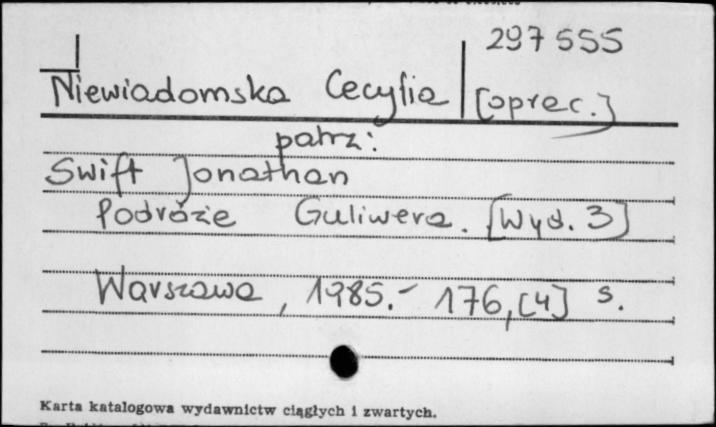 297555
Niewiadomska Cecylia [oprac.]
patrz:
Swift Jonathan
Podróże Guliwera. [Wyd. 3]
Warszawa, 1985.- 176, [4] s.
Karta katalogowa wydawnictw ciągłych i zwartych.